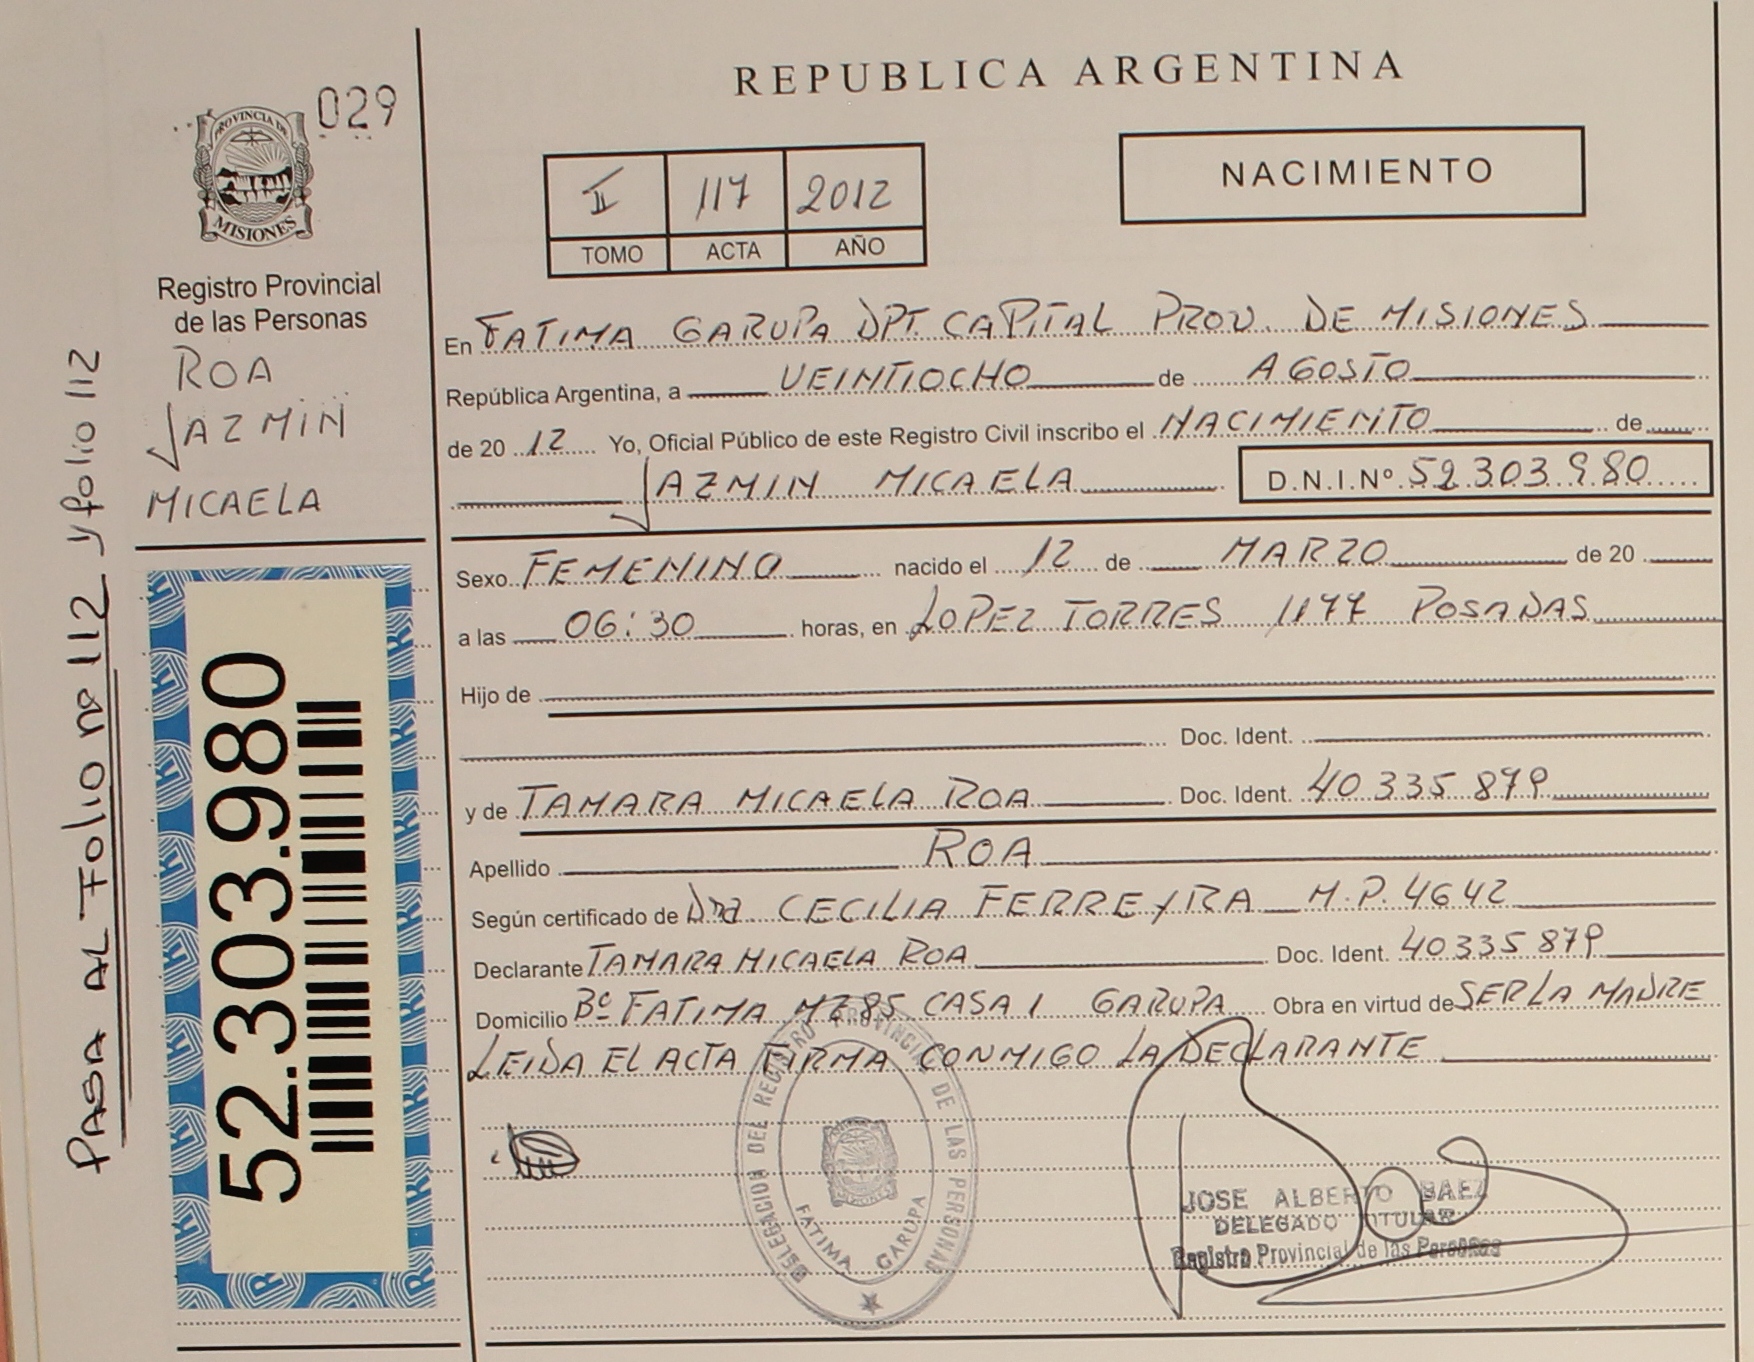 029
PROVINCIA DE
MISIONES
Registro Provincial
de las Personas
ROA
JAZMIN
MICAELA
PASA AL Folio nº 112 y folio 112
52.303.980
REPUBLICA ARGENTINA
II 117 2012
TOMO ACTA AÑO
NACIMIENTO
En FATIMA GARUPA DPT. CAPITAL PROV. DE MISIONES
República Argentina, a VEINTIOCHO de AGOSTO
de 20 12 Yo, Oficial Público de este Registro Civil inscribo el NACIMIENTO de
JAZMIN MICAELA D.N.I.Nº 52.303.980
Sexo FEMENINO nacido el 12 de MARZO de 20
a las 06:30 horas, en LOPEZ TORRES 1177 POSADAS
Hijo de
Doc. Ident.
y de TAMARA MICAELA ROA Doc. Ident. 40335879
Apellido ROA
Según certificado de Dra CECILIA FERREYRA M.P. 4642
Declarante TAMARA MICAELA ROA Doc. Ident. 40335879
Domicilio Bº FATIMA MZ85 CASA 1 GARUPA Obra en virtud de SER LA MADRE
LEIDA EL ACTA FIRMA CONMIGO LA DECLARANTE
DELEGACION DEL REGISTRO PROVINCIAL DE LAS PERSONAS
FATIMA GARUPA
JOSE ALBERTO BAEZ
DELEGADO TITULAR
Registro Provincial de las Personas